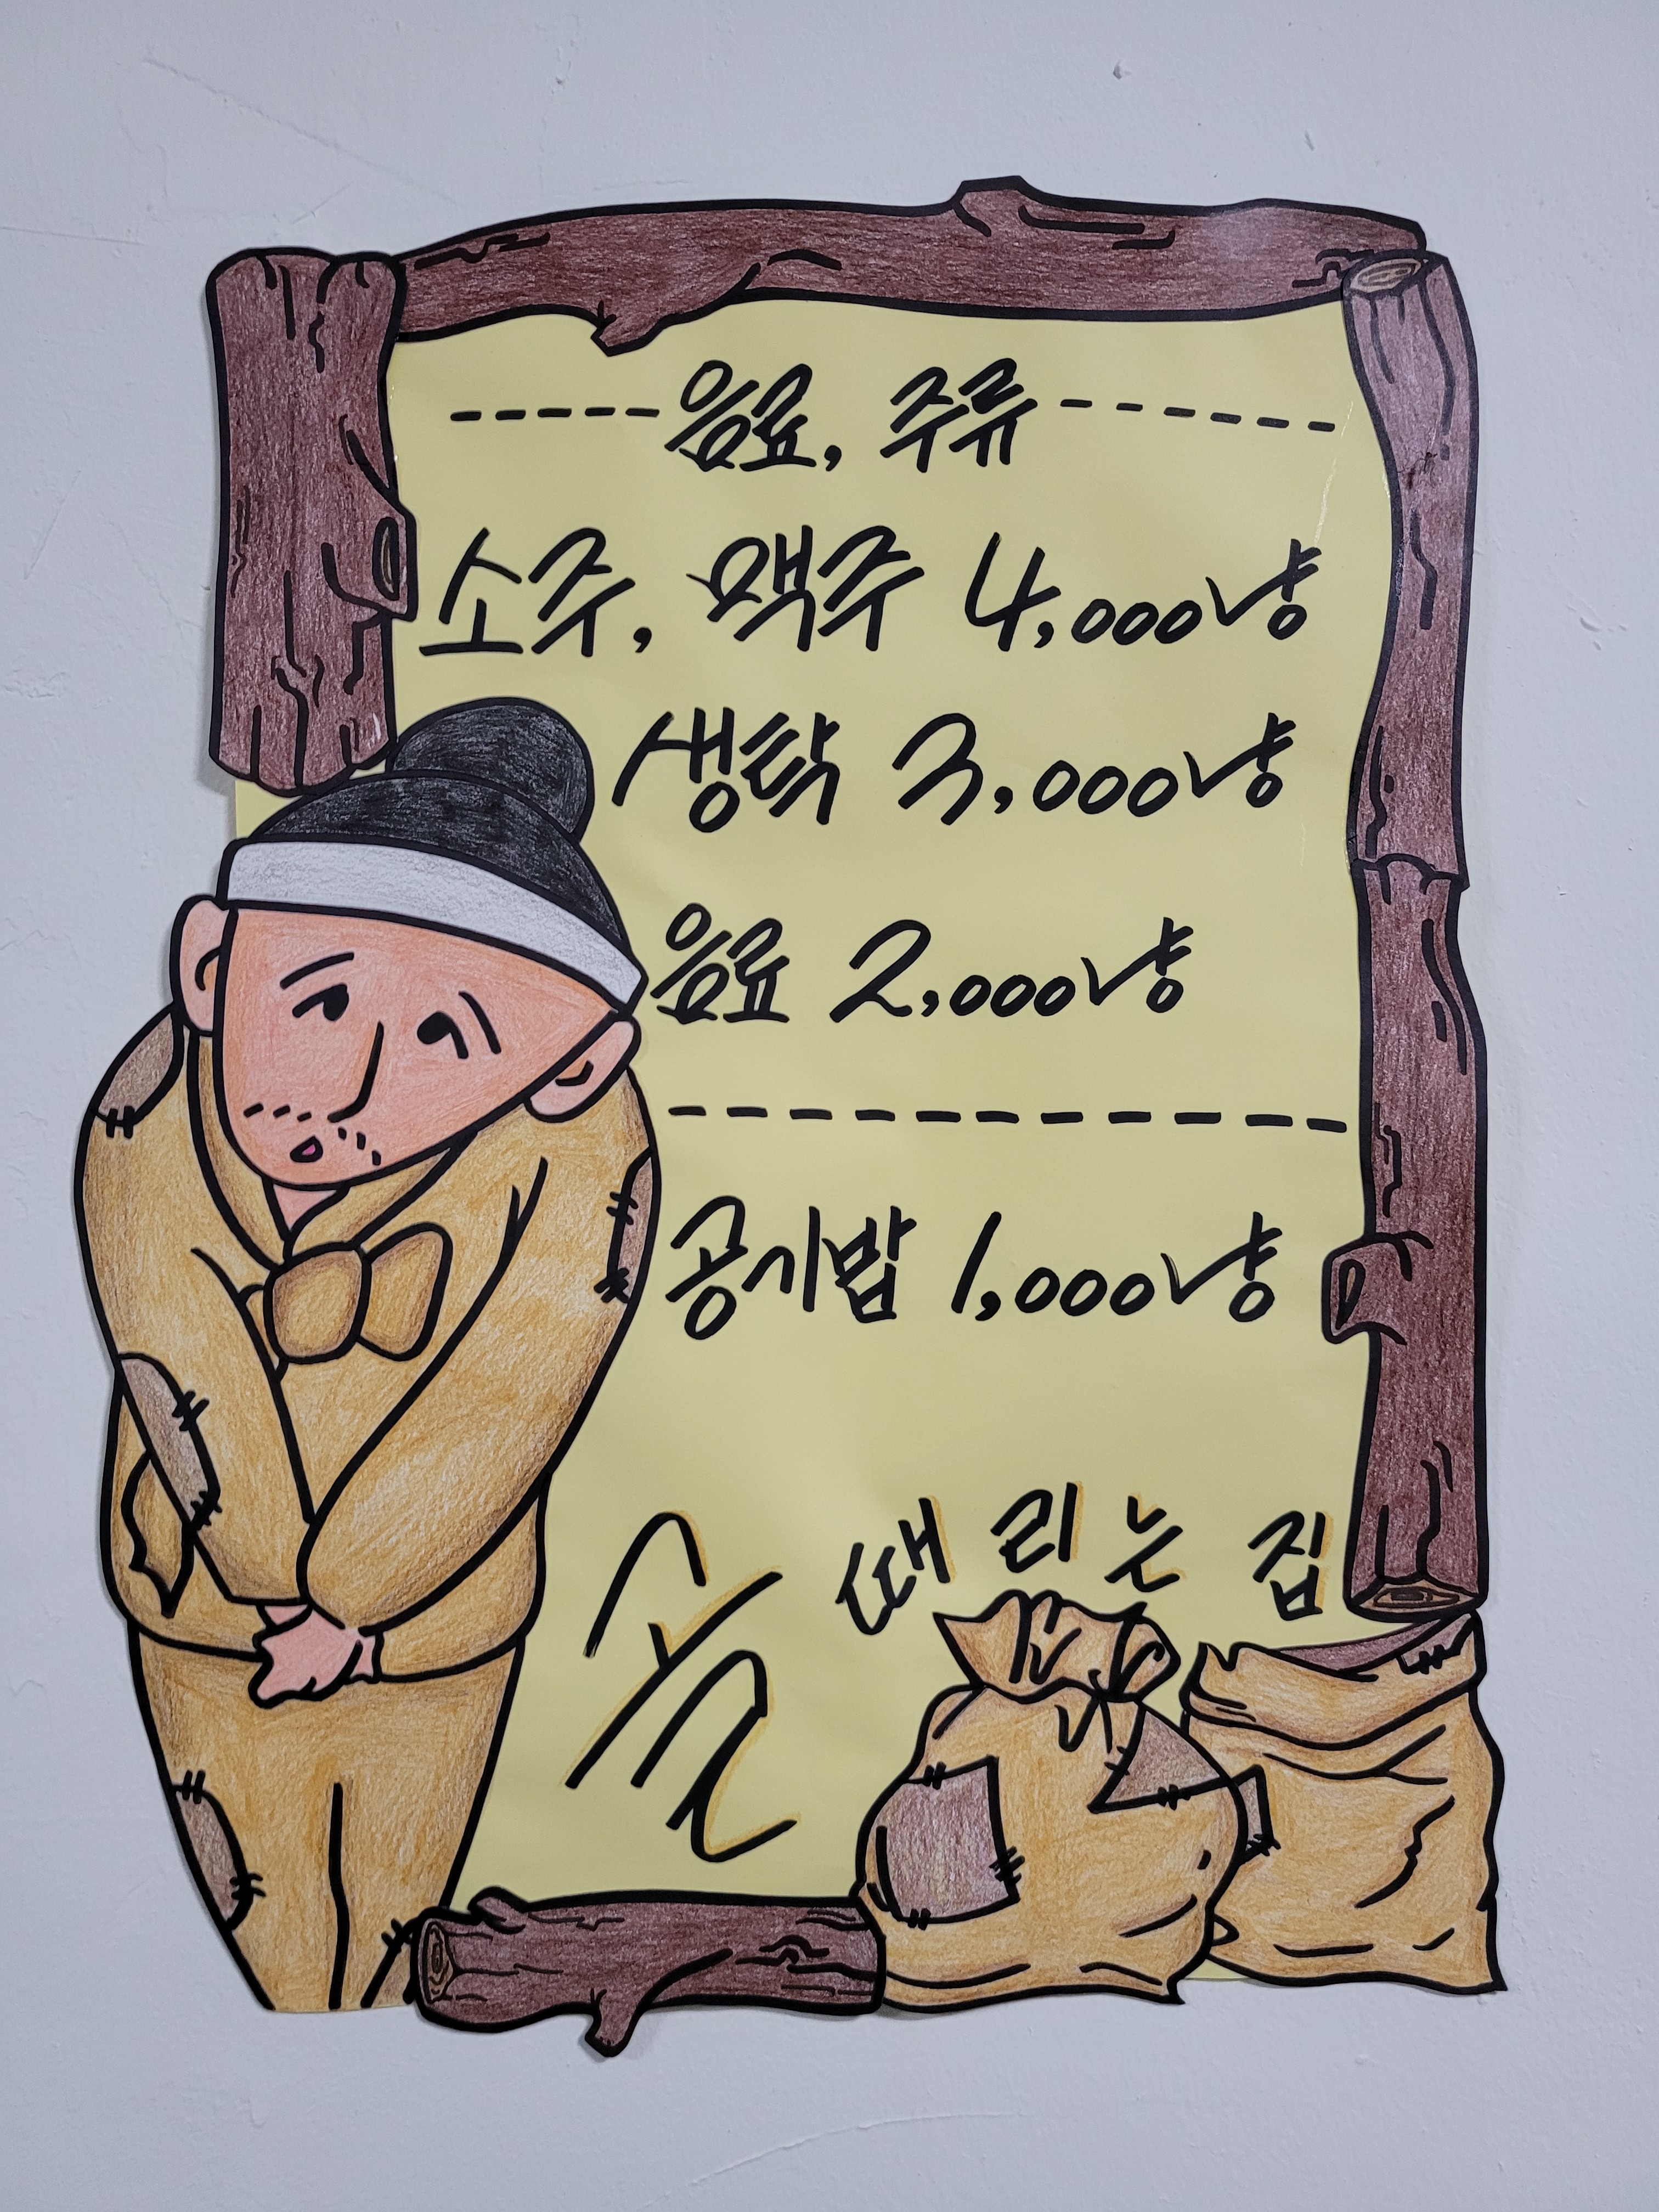 음료, 주류
소주, 맥주 4,000냥
생탁 3,000냥
음료 2,000냥
공기밥 1,000냥
골 때리는 집